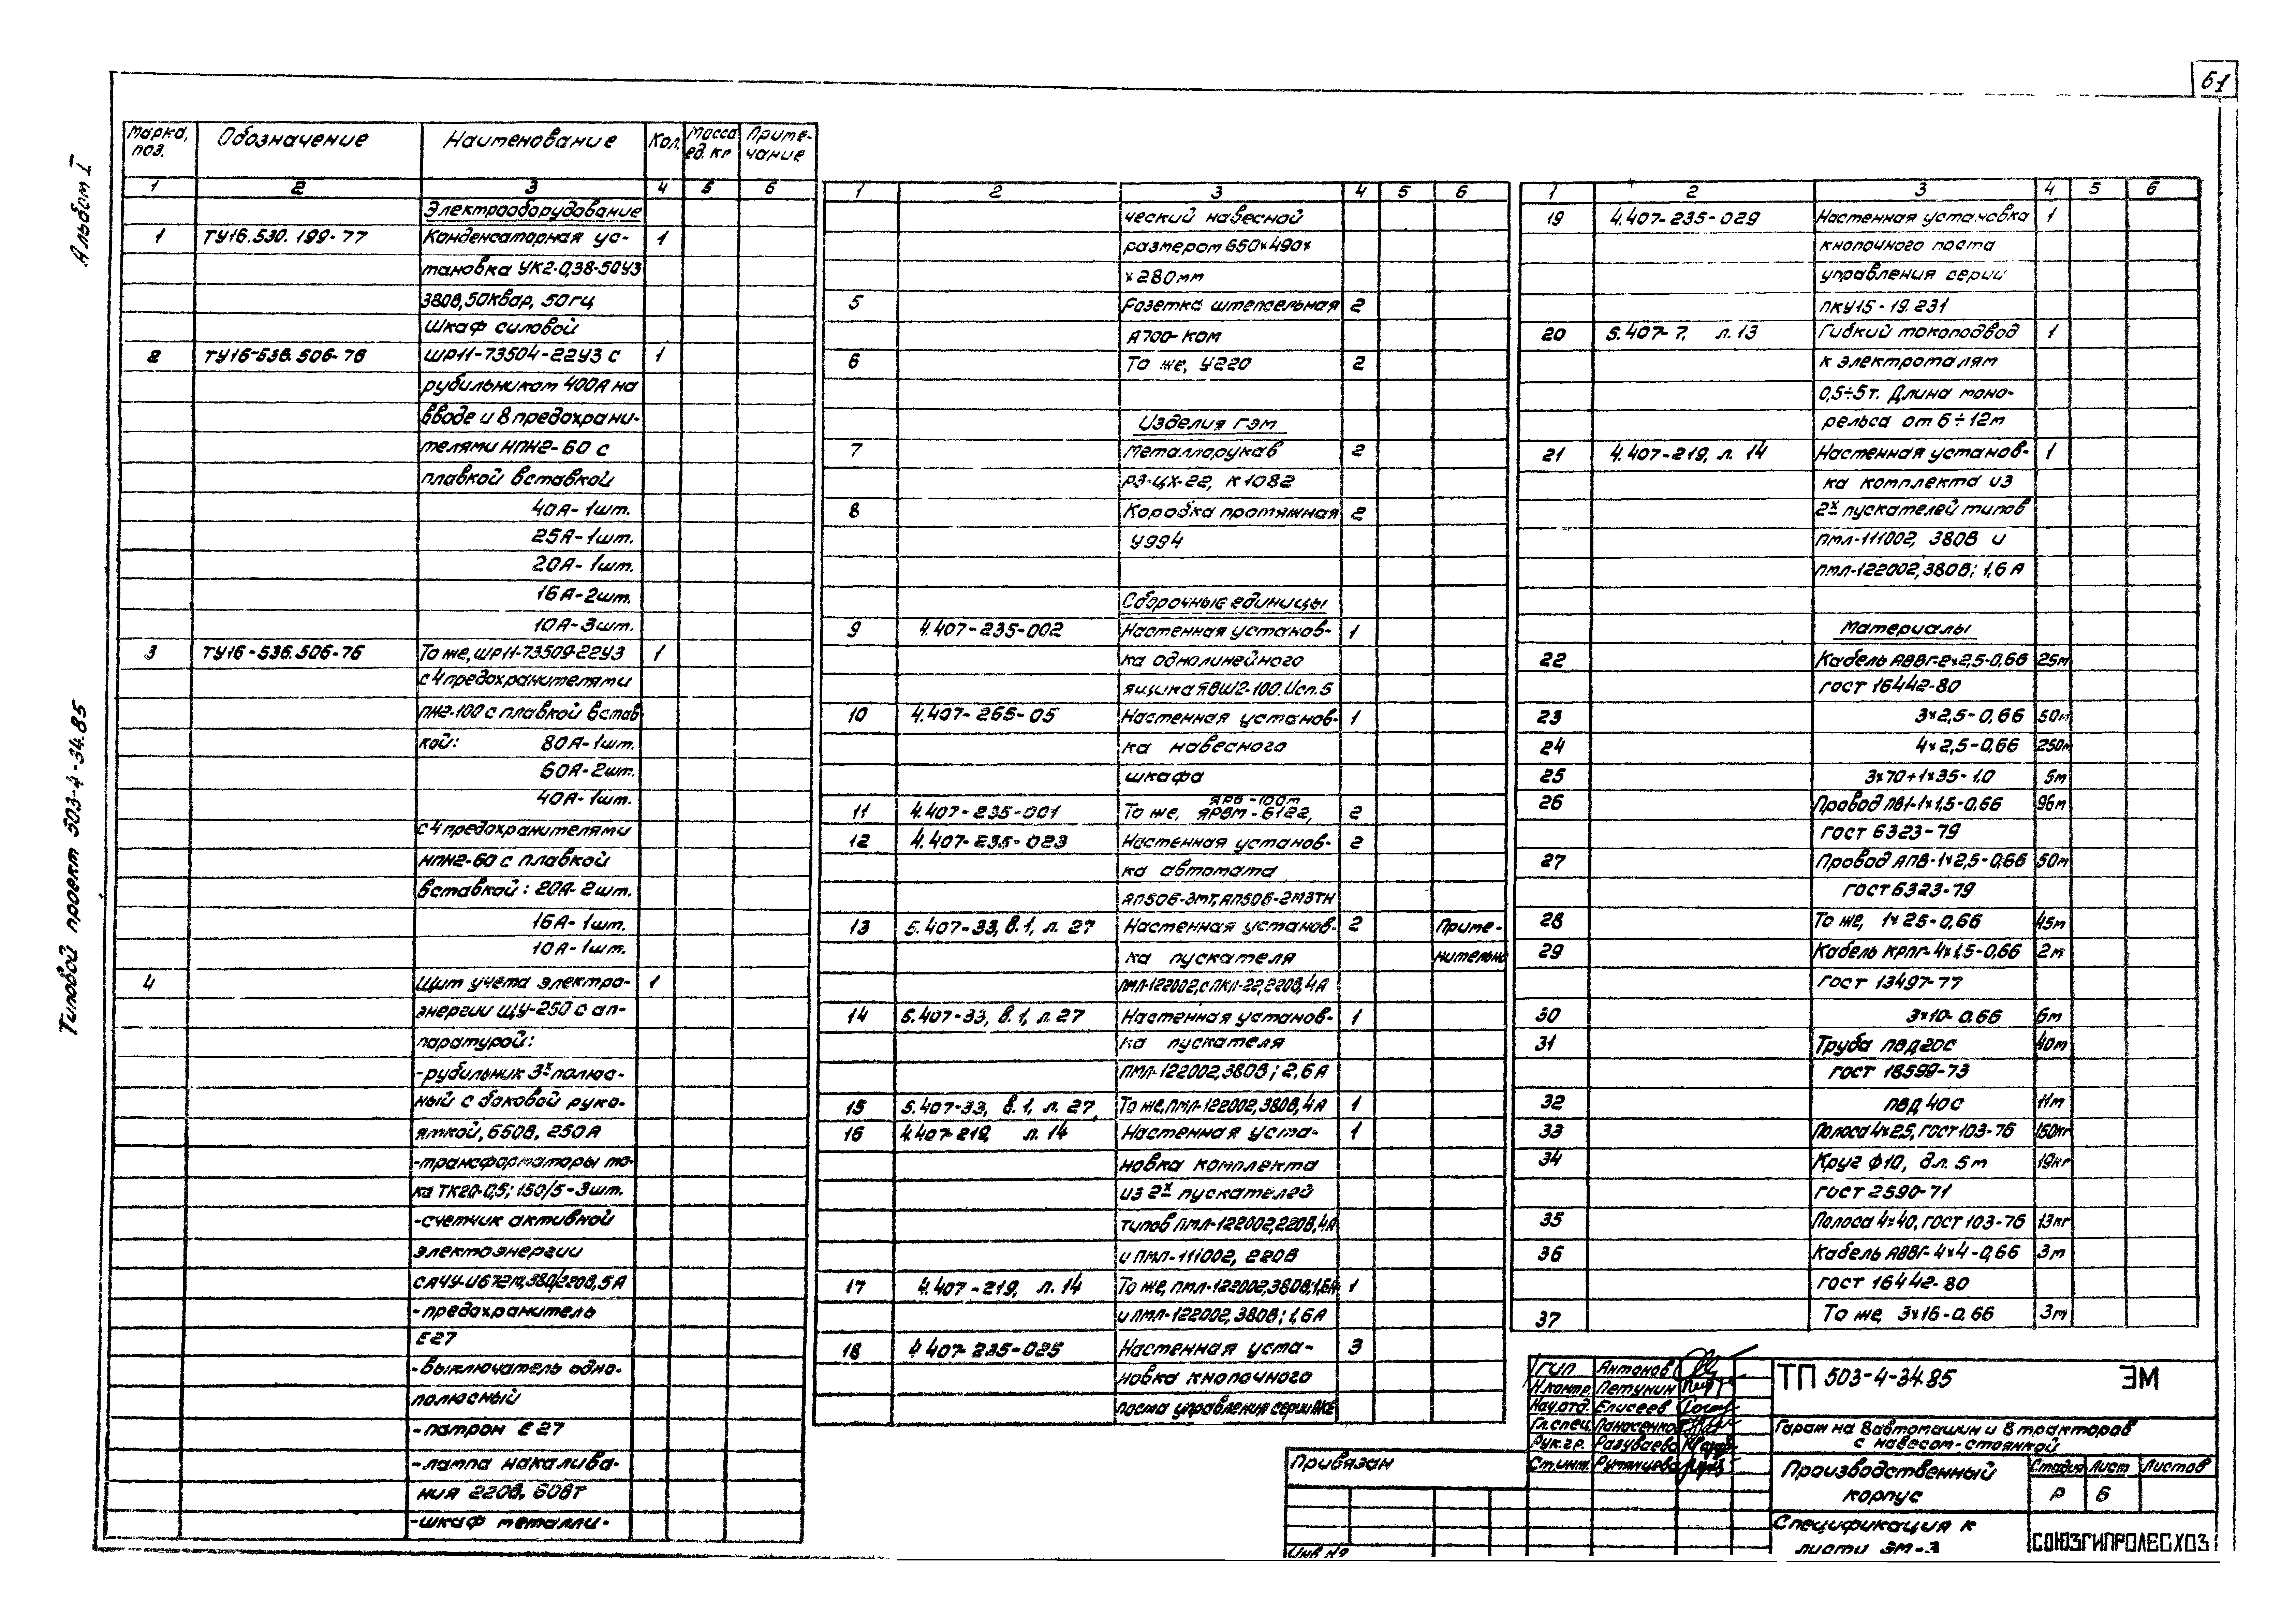 61
Альбом I
Типовой проект 503-4-34.85
Марка, поз. Обозначение Наименование Кол. Масса ед. кг Приме-чание
1 2 3 4 5 6
Электрооборудование
1 ТУ16.530.199-77 Конденсаторная ус- 1
тановка УК2-0,38-50У3
380В, 50квар, 50гц
Шкаф силовой
2 ТУ16-536.506-76 ШР11-73504-22У3 с 1
рубильником 400А на
вводе и 8 предохрани-
телями НПН2-60 с
плавкой вставкой
40А-1шт.
25А-1шт.
20А-1шт.
16А-2шт.
10А-3шт.
3 ТУ16-536.506-76 То же, ШР11-73509-22У3 1
с 4 предохранителями
ПН2-100 с плавкой встав-
кой: 80А-1шт.
60А-2шт.
40А-1шт.
с 4 предохранителями
НПН2-60 с плавкой
вставкой: 20А-2шт.
16А-1шт.
10А-1шт.
4 Щит учета электро- 1
энергии ЩУ-250 с ап-
паратурой:
-рубильник 3х полюс-
ный с боковой руко-
яткой, 660В, 250А
-трансформаторы то-
ка ТК20-0,5; 150/5-3шт.
-счетчик активной
электоэнергии
СА4У-И672М, 380/220В, 5А
-предохранитель
Е27
-выключатель одно-
полюсный
-патрон Е27
-лампа накалива-
ния 220В, 60Вт
-шкаф металли-
1 2 3 4 5 6
ческий навесной
размером 650×490×
×280мм
5 Розетка штепсельная 2
А700-КОМ
6 То же, У220 2
Изделия ГЭМ
7 Металлорукав 2
РЗ-ЦХ-22, К1082
8 Коробка протяжная 2
У994
Сборочные единицы
9 4.407-235-002 Настенная установ- 1
ка однолинейного
ящика ЯВШ2-100. Исп.5
10 4.407-265-05 Настенная установ- 1
ка навесного
шкафа
ЯРВ-100м
11 4.407-235-001 То же, ЯРВМ-6122, 2
12 4.407-235-023 Настенная установ- 2
ка автомата
АП50Б-3МТ, АП50Б-2М3ТН
13 5.407-33, в.1, л. 27 Настенная установ- 2 Приме-
ка пускателя нительно
ПМЛ-122002, с ПКЛ-22, 220В, 4А
14 5.407-33, в.1, л.27 Настенная установ- 1
ка пускателя
ПМЛ-122002, 380В; 2,6А
15 5.407-33, в.1, л. 27, То же, ПМЛ-122002, 380В, 4А 1
16 4.407-219, л. 14 Настенная уста- 1
новка комплекта
из 2х пускателей
типов ПМЛ-122002, 220В, 4А
и ПМЛ-111002, 220В
17 4.407-219, л. 14 То же, ПМЛ-122002, 380В; 1,6А 1
и ПМЛ-122002, 380В; 1,6А
18 4.407-235-025 Настенная уста- 3
новка кнопочного
поста управления серии ПКЕ
1 2 3 4 5 6
19 4.407-235-029 Настенная установка 1
кнопочного поста
управления серии
ПКУ15-19.231
20 5.407-7, л.13 Гибкий токоподвод 1
к электроталям
0,5÷5т. Длина моно-
рельса от 6÷12м
21 4.407-219, л. 14 Настенная установ- 1
ка комплекта из
2х пускателей типов
ПМЛ-111002, 380В и
ПМЛ-122002, 380В; 1,6А
Материалы
22 Кабель АВВГ-2×2,5-0,66 25м
ГОСТ 16442-80
23 3×2,5-0,66 50м
24 4×2,5-0,66 250м
25 3×70+1×35-1,0 5м
26 Провод ПВ1-1×1,5-0,66 96м
ГОСТ 6323-79
27 Провод АПВ-1×2,5-0,66 50м
ГОСТ 6323-79
28 То же, 1×25-0,66 45м
29 Кабель КРПГ-4×1,5-0,66 2м
ГОСТ 13497-77
30 3×10-0.66 6м
31 Труба ПВД20С 40м
ГОСТ 18599-73
32 ПВД 40С 11м
33 Полоса 4×25, ГОСТ 103-76 150кг
34 Круг Ф10, дл. 5м 19кг
ГОСТ 2590-71
35 Полоса 4×40, ГОСТ 103-76 13кг
36 Кабель АВВГ-4×4-0,66 3м
ГОСТ 16442-80
37 То же, 3×16-0,66 3м
ГИП Антонов
Н.контр. Петунин
Нач.отд. Елисеев
Гл.спец. Панасенков
Рук.гр. Разуваева
Ст.инж. Румянцева
ТП 503-4-34.85 ЭМ
Гараж на 8 автомашин и 8 тракторов
с навесом-стоянкой
Производственный корпус
Стадия Лист Листов
Р 6
Спецификация к
листу ЭМ-3
СОЮЗГИПРОЛЕСХОЗ
Привязан
Инв №